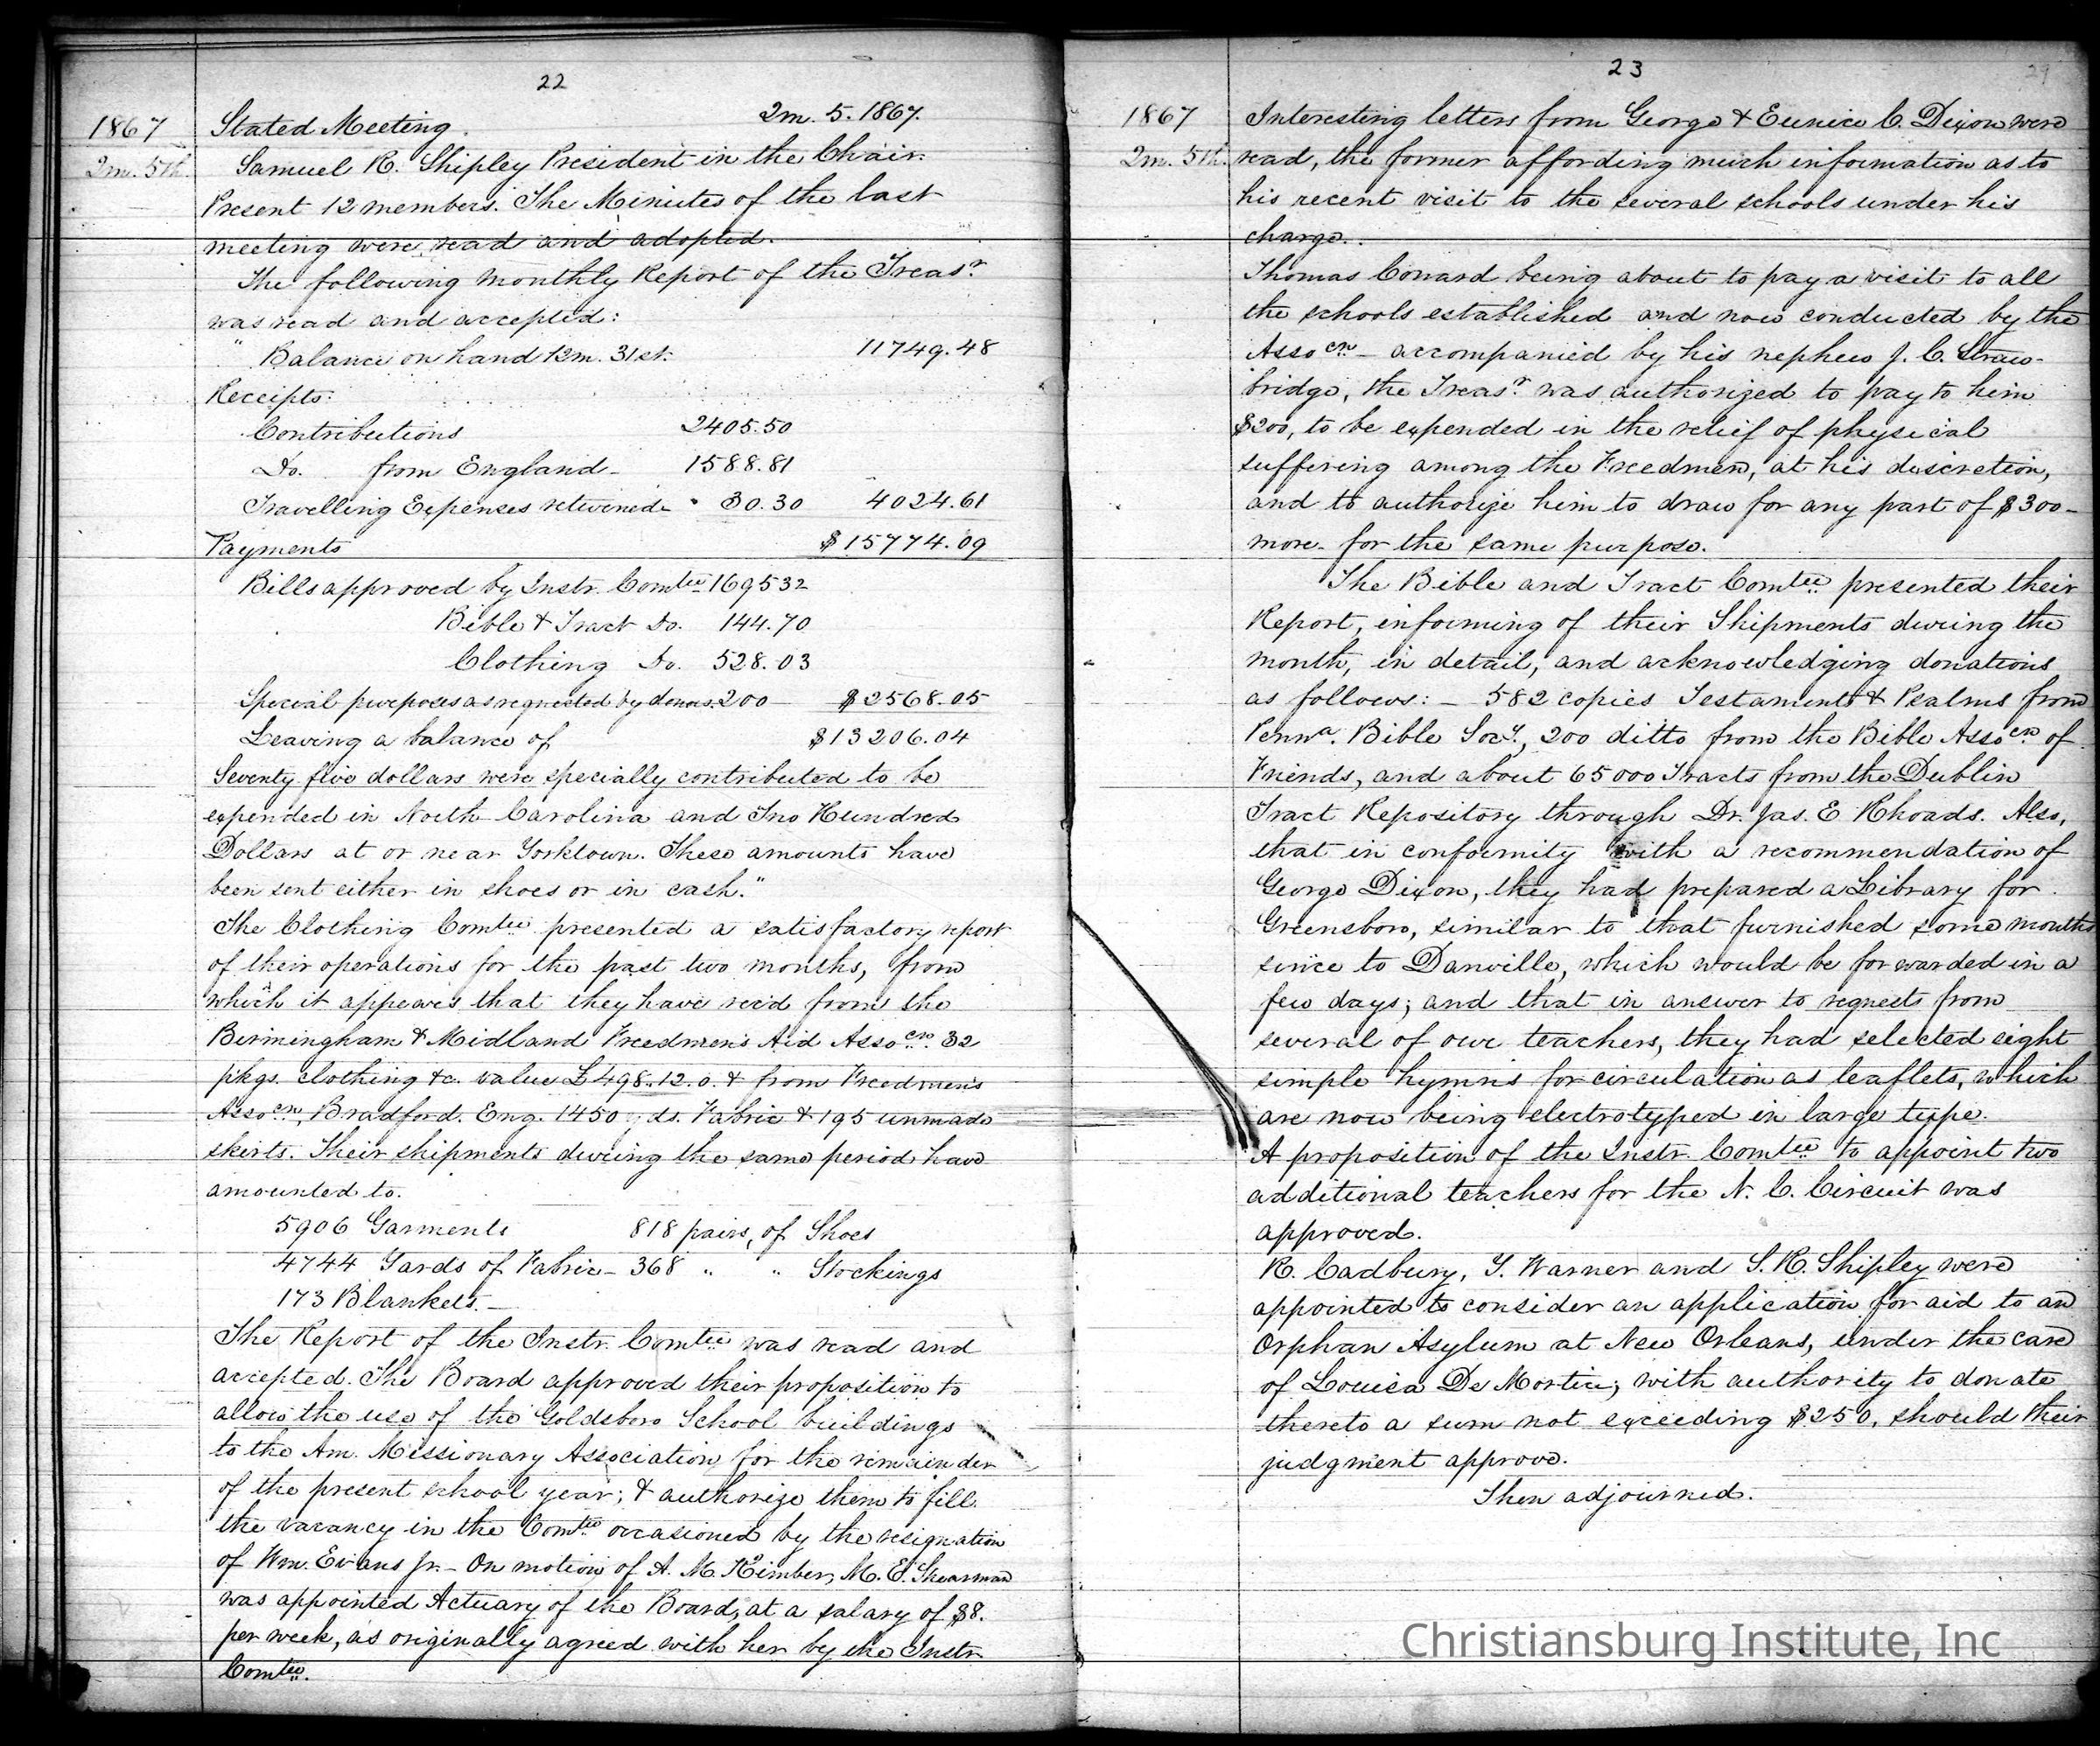 22
1867 Stated Meeting. 2m. 5. 1867.
2m. 5th. Samuel R. Shipley President in the Chair.
Present 12 members. The Minutes of the last
meeting were read and adopted.
The following Monthly Report of the Treasr.
was read and accepted:
" Balance on hand 12m. 31st. 11749.48
Receipts:
Contributions 2405.50
Do. from England - 1588.81
Travelling Expenses returned - 30.30 4024.61
Payments $15774.09
Bills approved by Instr. Comtee 169532
Bible & Tract Do. 144.70
Clothing Do. 528.03
Special purposes as requested by donors. 200 — $2568.05
Leaving a balance of $13206.04
Seventy five dollars were specially contributed to be
expended in North Carolina and Two Hundred
Dollars at or near Yorktown. These amounts have
been sent either in shoes or in cash."
The Clothing Comtee presented a satisfactory report
of their operations for the past two months, from
which it appears that they have rec'd from the
Birmingham & Midland Freedmen's Aid Assocn. 32
pkgs. clothing &c. value £498.12.0. & from Freedmen's
Assocn, Bradford. Eng. 1450 yds. Fabric & 195 unmade
skirts. Their shipments during the same period have
amounted to.
5906 Garments 818 pairs, of Shoes
4744 Yards of Fabric - 368 " " Stockings
173 Blankets. —
The Report of the Instr. Comtee was read and
accepted. The Board approved their proposition to
allow the use of the Goldsboro School buildings
to the Am. Missionary Association for the remainder
of the present school year; & authorize them to fill
the vacancy in the Comtee occasioned by the resignation
of Wm. Evans Jr. - On motion of A. M. Kimber, M. E. Shearman
was appointed Actuary of the Board, at a salary of $8.
per week, as originally agreed with her by the Instr.
Comtee.
23
1867 Interesting letters from George & Eunice C. Dixon were
2m. 5th. read, the former affording much information as to
his recent visit to the several schools under his
charge.
Thomas Conard being about to pay a visit to all
the schools established and now conducted by the
Assocn - accompanied by his nephew J. C. Straw-
bridge, the Treasr. was authorized to pay to him
$200, to be expended in the relief of physical
suffering among the Freedmen, at his discretion,
and to authorize him to draw for any part of $300 -
more - for the same purpose.
The Bible and Tract Comtee presented their
Report, informing of their Shipments during the
month, in detail, and acknowledging donations
as follows: - 582 copies Testaments & Psalms from
Penna. Bible Socy., 200 ditto from the Bible Assocn of
Friends, and about 65000 Tracts from the Dublin
Tract Repository through Dr. Jas. E Rhoads. Also,
that in conformity with a recommendation of
George Dixon, they had prepared a Library for
Greensboro, similar to that furnished some months
since to Danville, which would be forwarded in a
few days; and that in answer to requests from
several of our teachers, they had selected eight
simple hymns for circulation as leaflets, which
are now being electrotyped in large type.
A proposition of the Instr. Comtee to appoint two
additional teachers for the N. C. Circuit was
approved.
R. Cadbury, Y. Warner and S. R. Shipley were
appointed to consider an application for aid to an
Orphan Asylum at New Orleans, under the care
of Louisa De Mortie; with authority to donate
thereto a sum not exceeding $250, should their
judgment approve.
Then adjourned.
Christiansburg Institute, Inc